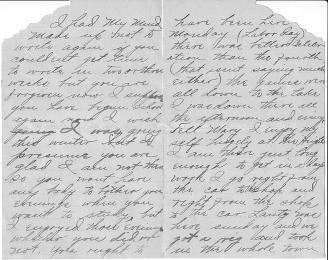 I had My Mind
made up not to
write again if you
couldent get time
to write in two or three
weeks but you are
forgiven now I suppose
you have begun school
again now I wish
I was going
this winter but I
presume you are
glad I am not there
so you wont have
any body to bother you
evenings when you
want to study, but
I enjoyed those evenings
whether you did or
not. You ought to
have been here
Monday (Labor day)
there was better
than the fourth
that isent saying much
either the pictures were
all down to the lake
I was down there all
the afternoon and evening
Tell Mary I enjoy my
self hugely at the
I am there just long
enough to get in my
work I go right from
the car to shop and
right from the shop
to the car
here sunday and we
got a rig and took
in the whole town